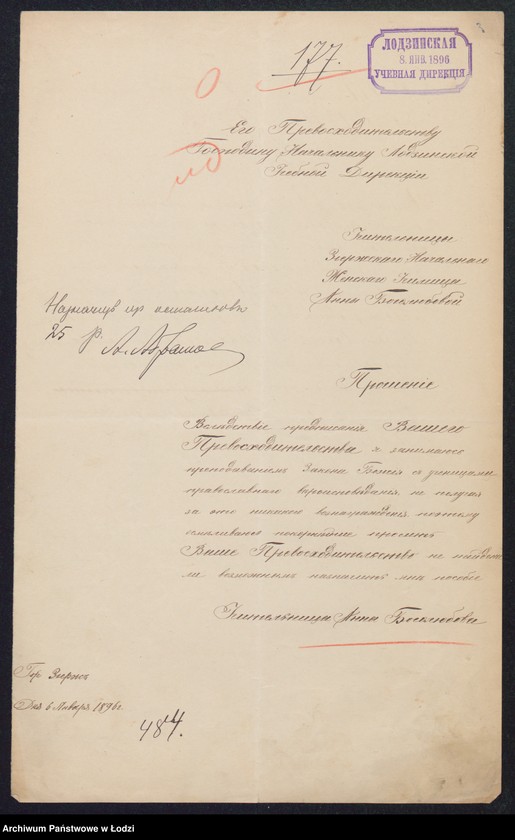 177.
ЛОДЗИНСКАЯ
8. ЯНВ. 1896
УЧЕБНАЯ ДИРЕКЦІЯ
Его Превосходительству
Господину Начальнику Лодзинской
Учебной Дирекціи
Учительницы
Згержскаго Начальнаго
Женскаго Училища
Анны
Назначить из остатков
25 р.
Прошеніе
Вслѣдствіе предписанія Вашего
Превосходительства я занимаюсь
преподаваніемъ Закона Божія съ ученицами
православнаго вѣроисповѣданія, не получая
за это никакого вознагражденія, поэтому
осмѣливаюсь покорнѣйше просить
Ваше Превосходительство не найдете
ли возможнымъ назначить мнѣ пособіе
Учительница Анна
Гор. Згержъ
Дня 6 Января 1896 г.
484.
Archiwum Państwowe w Łodzi